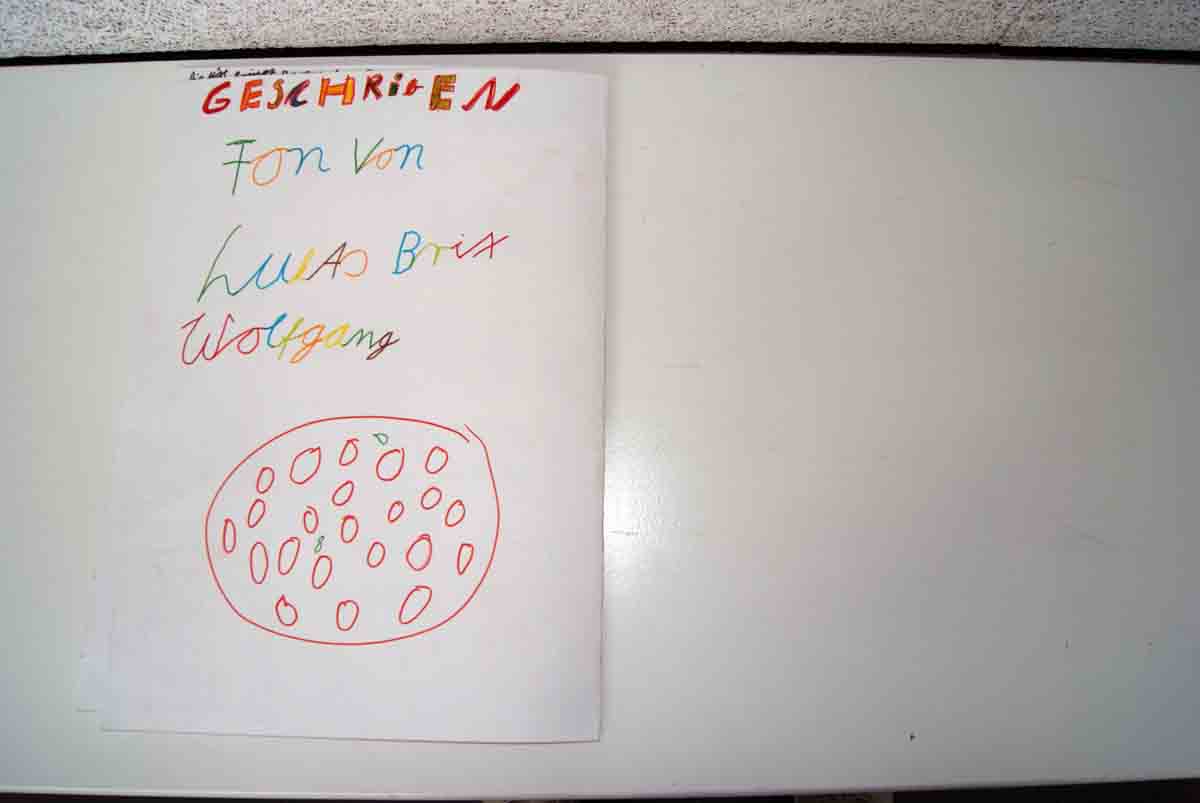 GESCHRIbEN
Fon Von
LukAs Brix
Wolfgang
8